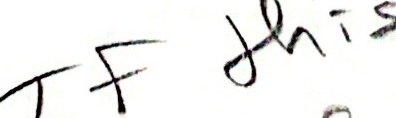 IF this